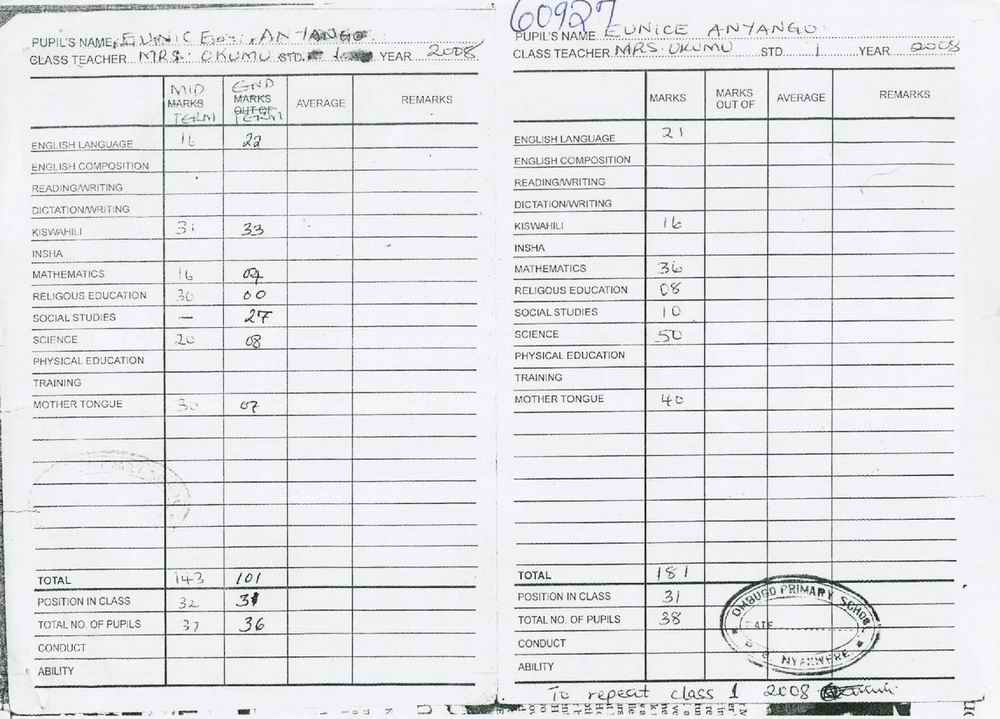 PUPIL'S NAME EUNICE ANYANGO
CLASS TEACHER MRS. OKUMU STD. YEAR 2008
MID TERM MARKS END TERM MARKS OUT OF AVERAGE REMARKS
ENGLISH LANGUAGE 16 22
ENGLISH COMPOSITION
READING/WRITING
DICTATION/WRITING
KISWAHILI 31 33
INSHA
MATHEMATICS 16 04
RELIGOUS EDUCATION 30 00
SOCIAL STUDIES — 27
SCIENCE 20 08
PHYSICAL EDUCATION
TRAINING
MOTHER TONGUE 30 07
TOTAL 143 101
POSITION IN CLASS 32 31
TOTAL NO. OF PUPILS 37 36
CONDUCT
ABILITY
60927
PUPIL'S NAME EUNICE ANYANGO
CLASS TEACHER MRS. OKUMU STD. 1 YEAR 2008
MARKS MARKS OUT OF AVERAGE REMARKS
ENGLISH LANGUAGE 21
ENGLISH COMPOSITION
READING/WRITING
DICTATION/WRITING
KISWAHILI 16
INSHA
MATHEMATICS 36
RELIGOUS EDUCATION 08
SOCIAL STUDIES 10
SCIENCE 50
PHYSICAL EDUCATION
TRAINING
MOTHER TONGUE 40
TOTAL 181
POSITION IN CLASS 31
TOTAL NO. OF PUPILS 38
CONDUCT
ABILITY
OMBUGO PRIMARY SCHOOL
DATE
NYAKWERE
To repeat class 1 2008